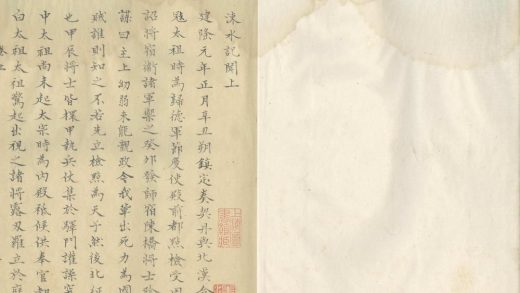 涑水記聞上
建隆元年正月辛丑朔鎮定奏契丹與北漢合
冦太祖時為歸德軍節度使殿前都㸃檢受周
詔將宿衛諸軍禦之癸夘發師宿陳橋將士陰
謀曰主上幼弱未能親政今我軰出死力為國
賊誰則知之不若先立㸃檢為天子然後北征
也甲辰將士皆擐甲執兵仗集於驛門讙譟突
中太祖尚未起太宗時為内殿祗候供奉官都
白太祖太祖驚起出視之諸將露刃羅立於庭
卷上